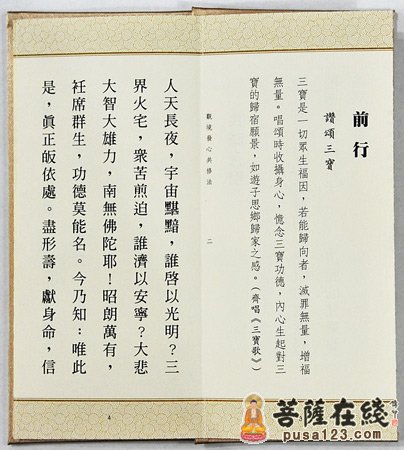 前行
讚頌三寶
三寶是一切眾生福因，若能歸向者，滅罪無量，增福
無量。唱頌時收攝身心，憶念三寶功德，內心生起對三
寶的歸宿願景，如遊子思鄉歸家之感。（齊唱《三寶歌》）
觀境發心共修法 二
人天長夜，宇宙黮黯，誰啓以光明？三
界火宅，衆苦煎迫，誰濟以安寧？大悲
大智大雄力，南無佛陀耶！昭朗萬有，
衽席群生，功德莫能名。今乃知：唯此
是，眞正皈依處。盡形壽，獻身命，信
4
菩薩在綫
pusa123.com